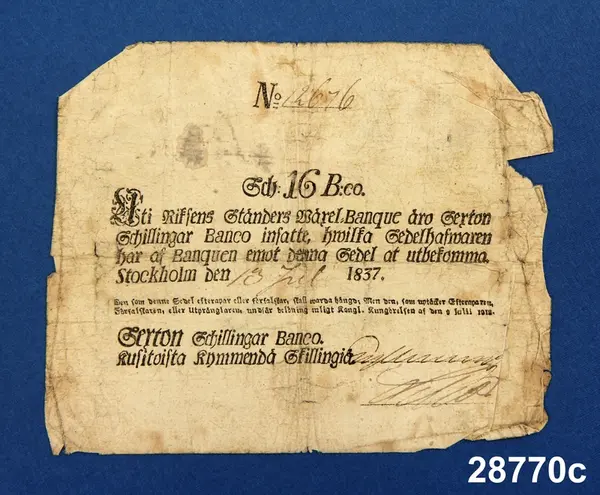 No 12676
Sch: 16 B:co.
Uti Riksens Ständers Wäxel-Banque äro Sexton
Schillingar Banco insatte, hwilka Sedelhafwaren
har af Banquen emot denna Sedel at utbekomma.
Stockholm den 13 Jul 1837.
Den som denne Sedel efterapar eller förfalskar, skall warda hängd; Men den, som uptäcker Efteraparen,
Förfalskaren, eller Utprånglaren, undfår belöning enligt Kongl. Kungörelsen af den 9 Julii 1818.
Sexton Schillingar Banco.
Kusitoista Kymmendä Skillingiä
28770c